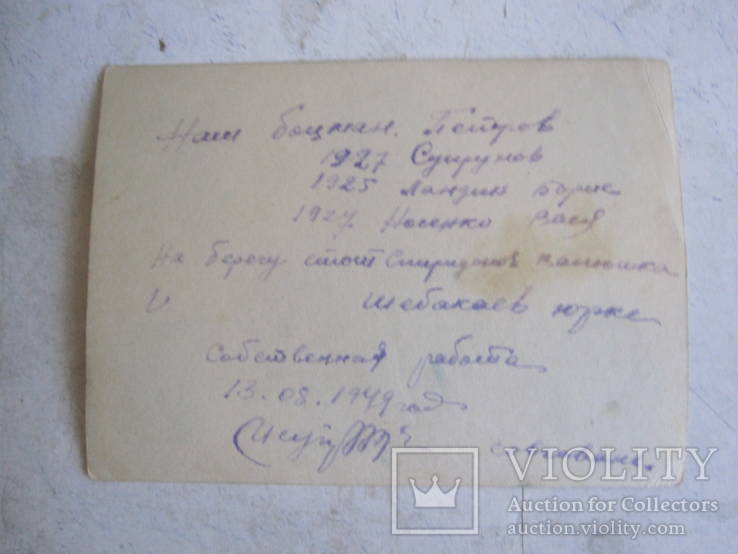 Наш боцман. Петров
1927 Супрунов
1925 Ландин Борис
1927 Носенко Вася
На берегу стоит Спиридонов Ванюшка
и Шебакаев Юрка
Собственная работа
13.08.1949 год
VIOLITY
Auction for Collectors
auction.violity.com